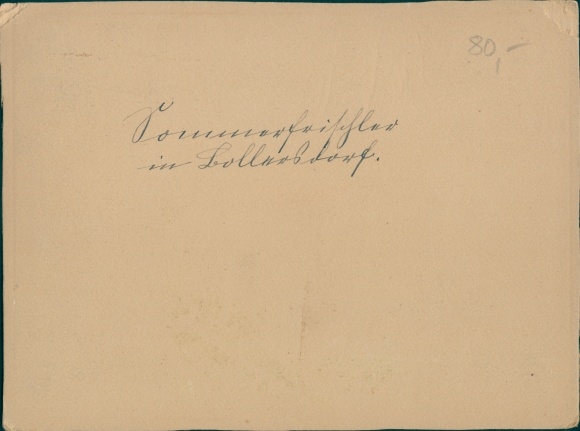 80,-
Sommerfrischler
in Bollersdorf.